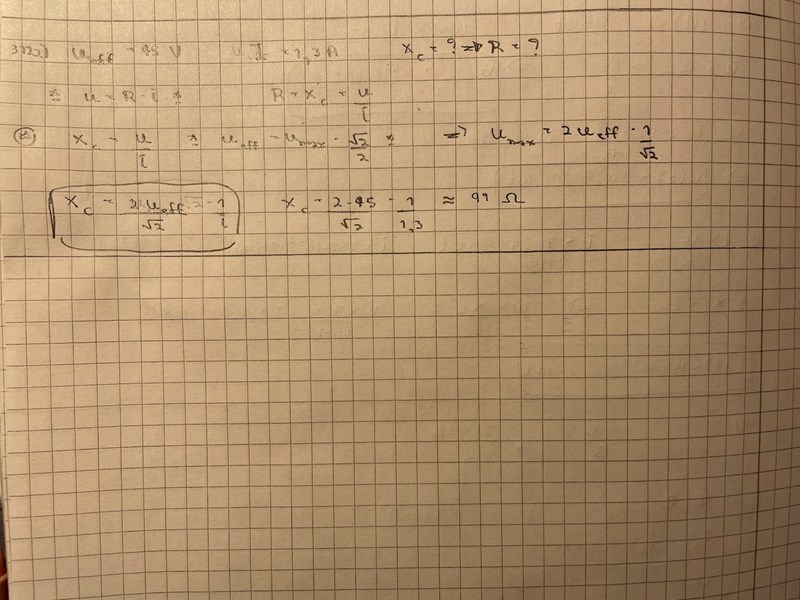 U_eff = 95 V I = 1,3 A X_c = ? => R = ?
u = R · i R = X_c = u/i
X_c = u/i U_eff = U_max · √2/2 => U_max = 2 U_eff · 1/√2
X_c = 2 · U_eff/√2 · 1/i X_c = 2 · 95/√2 · 1/1,3 ≈ 99 Ω